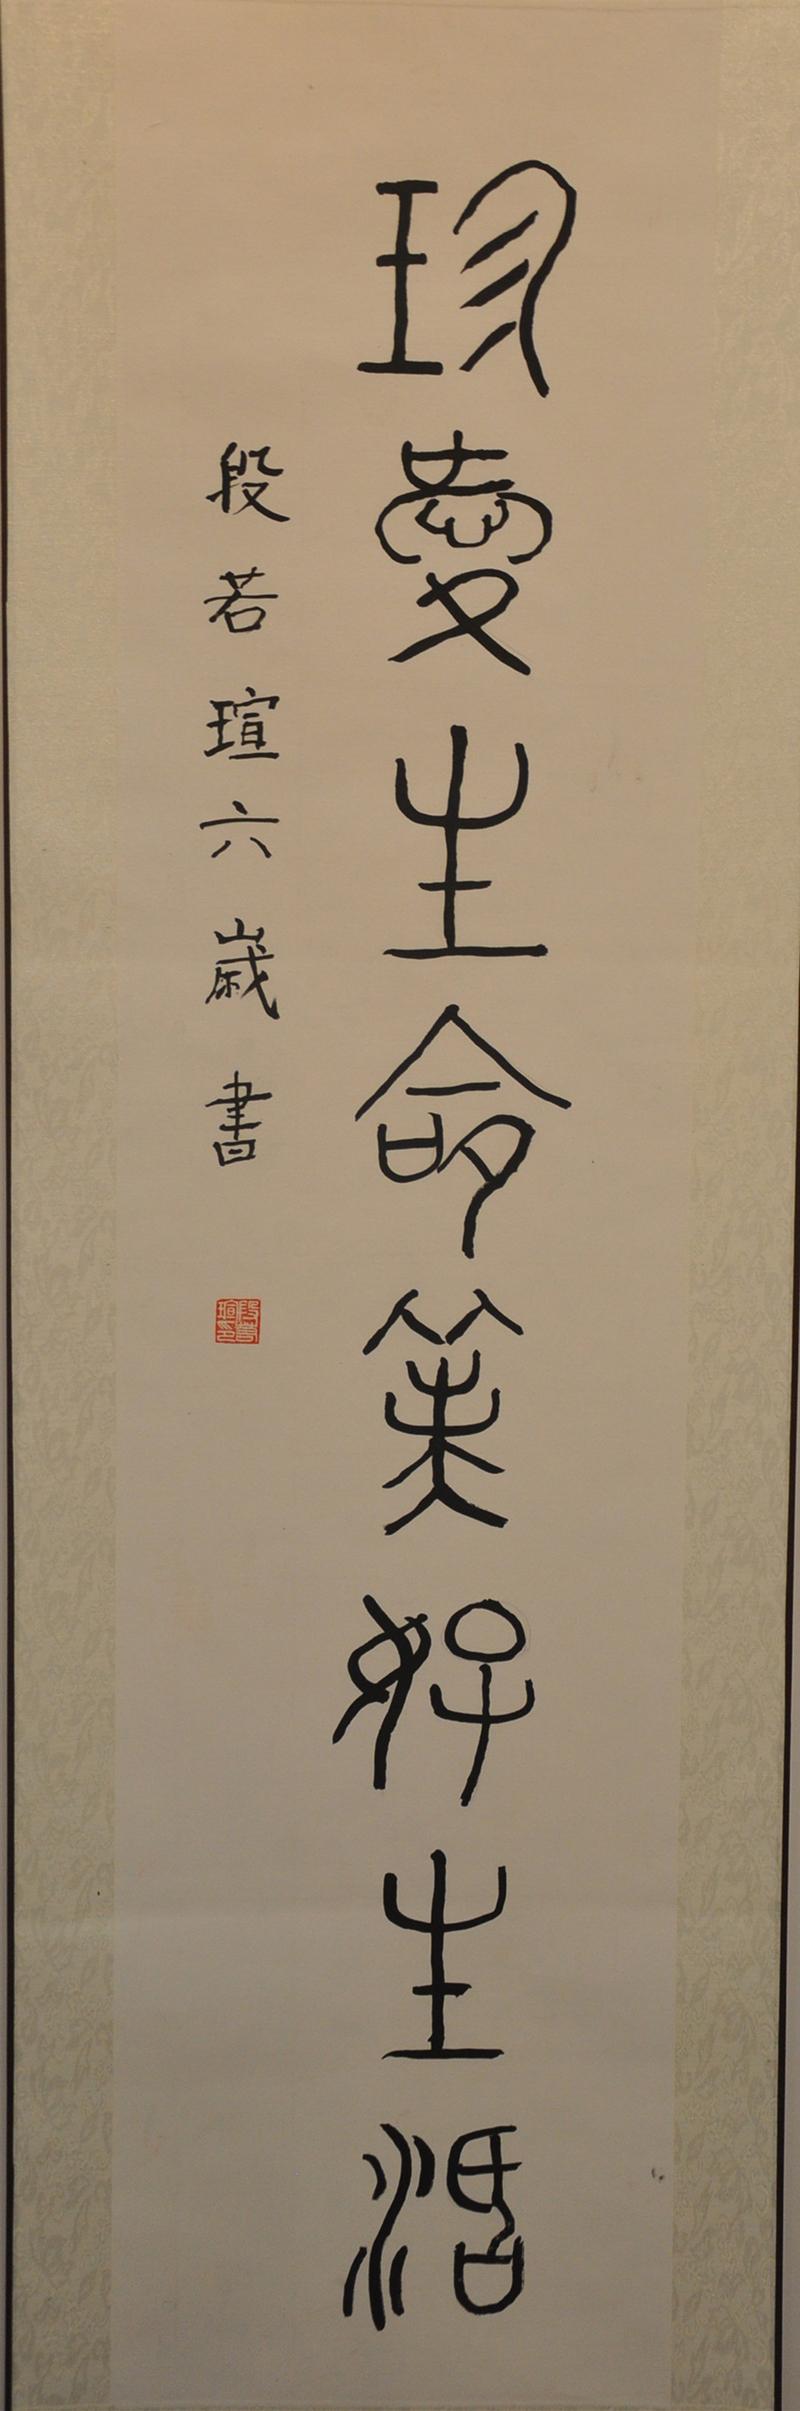 珍愛生命美好生活
段若瑄六歲書
段若瑄印